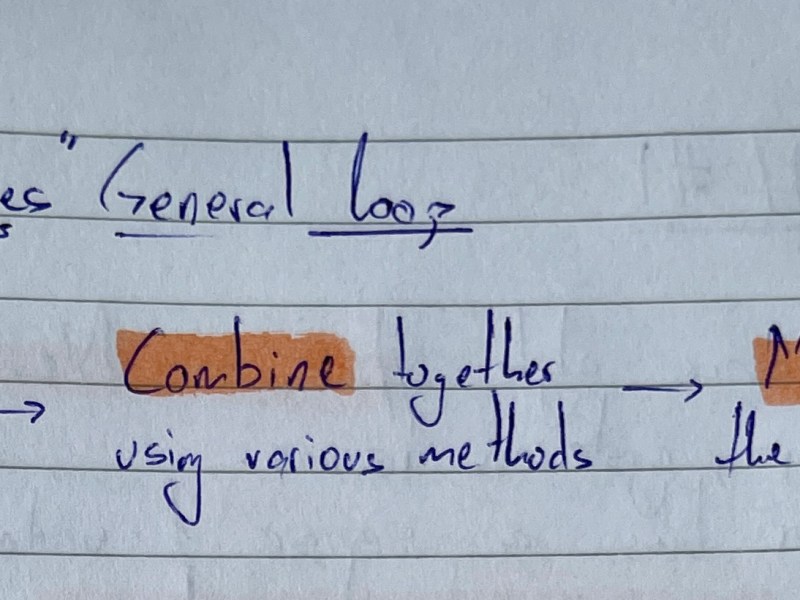 es " General loop
→ Combine together →
using various methods the